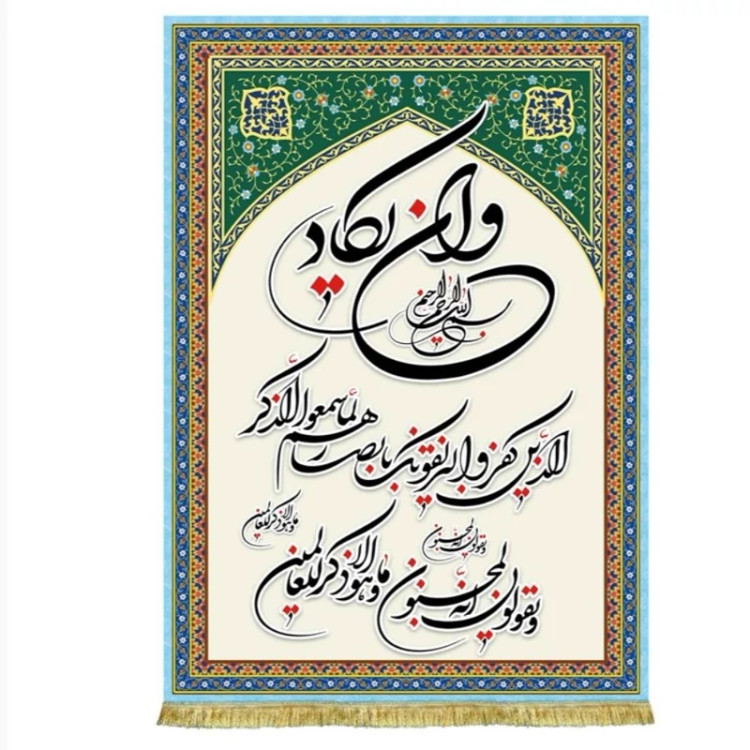 وان یکاد
بسم الله الرحمن الرحیم
الذین کفروا لیزلقونک بابصارهم لما سمعوا الذکر
ویقولون انه لمجنون
وما هو الا ذکر للعالمین
ویقولون انه لمجنون وما هو الا ذکر للعالمین